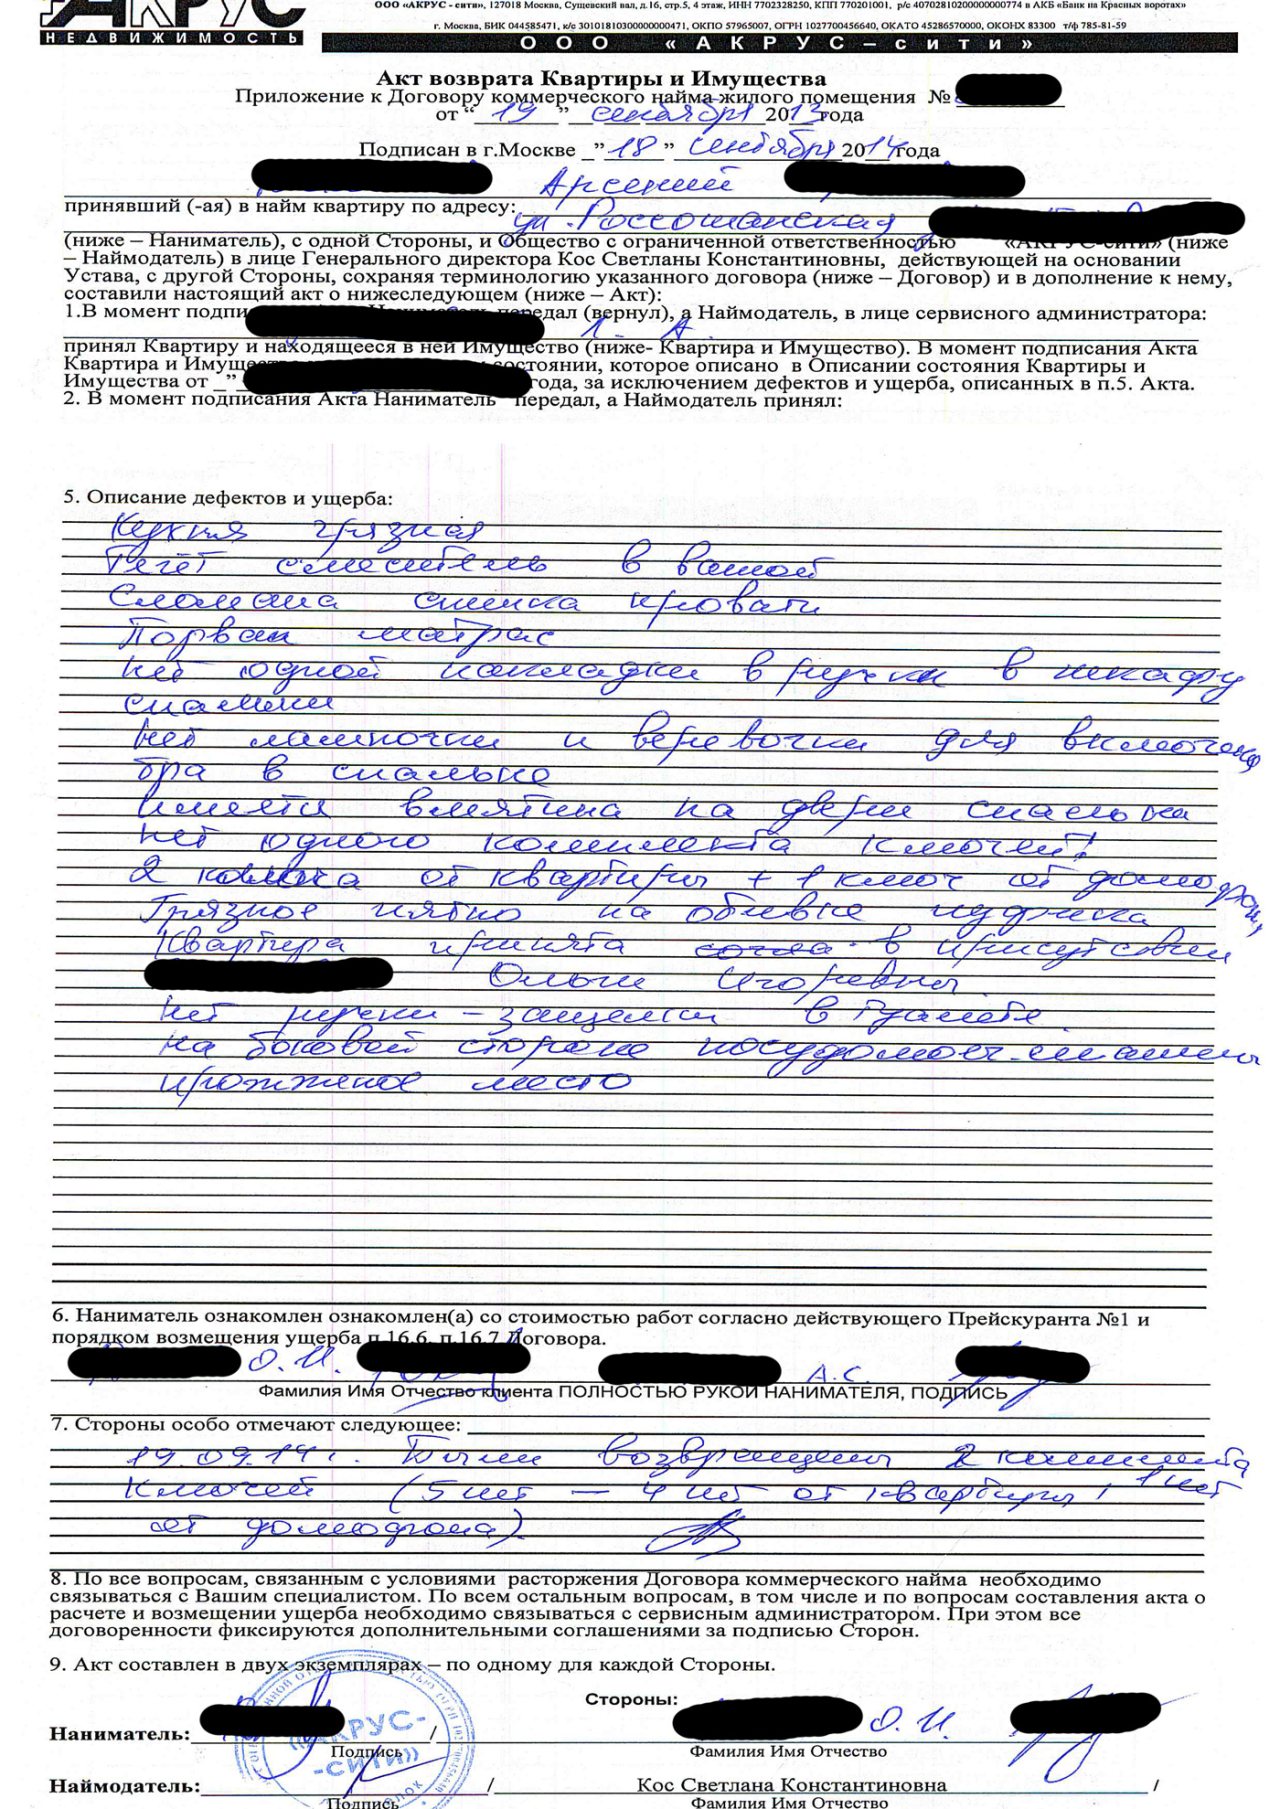 АКРУС
НЕДВИЖИМОСТЬ
ООО «АКРУС - сити», 127018 Москва, Сущевский вал, д.16, стр.5, 4 этаж, ИНН 7702328250, КПП 770201001, р/с 40702810200000000774 в АКБ «Банк на Красных воротах»
г. Москва, БИК 044585471, к/с 30101810300000000471, ОКПО 57965007, ОГРН 1027700456640, ОКАТО 45286570000, ОКОНХ 83300 т/ф 785-81-59
ООО «АКРУС–сити»
Акт возврата Квартиры и Имущества
Приложение к Договору коммерческого найма жилого помещения №
от “ 19 ” сентября 2013 года
Подписан в г.Москве ” 18 ” сентября 2014 года
Арсений
принявший (-ая) в найм квартиру по адресу:
ул. Россошанская
(ниже – Наниматель), с одной Стороны, и Общество с ограниченной ответственностью «АКРУС-сити» (ниже
– Наймодатель) в лице Генерального директора Кос Светланы Константиновны, действующей на основании
Устава, с другой Стороны, сохраняя терминологию указанного договора (ниже – Договор) и в дополнение к нему,
составили настоящий акт о нижеследующем (ниже – Акт):
1.В момент подпи передал (вернул), а Наймодатель, в лице сервисного администратора:
Л. А.
принял Квартиру и находящееся в ней Имущество (ниже- Квартира и Имущество). В момент подписания Акта
Квартира и Имущес состоянии, которое описано в Описании состояния Квартиры и
Имущества от ” года, за исключением дефектов и ущерба, описанных в п.5. Акта.
2. В момент подписания Акта Наниматель передал, а Наймодатель принял:
5. Описание дефектов и ущерба:
Кухня грязная
Течёт смеситель в ванной
Сломана спинка кровати
Порван матрас
Нет одной накладки в ручки в шкафу
спальни
Нет лампочки и веревочки для включения
бра в спальне
Имеется вмятина на двери спальни
Нет одного комплекта ключей!
2 ключа от квартиры + 1 ключ от домофона
Грязное пятно на обивке пуфика
Квартира принята в присутсвии
Ольги Игоревны.
Нет ручки – защелки в туалете.
на боковой стороне посудомоеч. машины
прожженое место
6. Наниматель ознакомлен ознакомлен(а) со стоимостью работ согласно действующего Прейскуранта №1 и
порядком возмещения ущерба п.16.6, п.16.7 Договора.
О. И. А.С.
Фамилия Имя Отчество клиента ПОЛНОСТЬЮ РУКОЙ НАНИМАТЕЛЯ, ПОДПИСЬ
7. Стороны особо отмечают следующее:
19.09.14г. Были возвращены 2 комплекта
Ключей (5 шт – 4 шт от квартиры, 1 шт
от домофона).
8. По все вопросам, связанным с условиями расторжения Договора коммерческого найма необходимо
связываться с Вашим специалистом. По всем остальным вопросам, в том числе и по вопросам составления акта о
расчете и возмещении ущерба необходимо связываться с сервисным администратором. При этом все
договоренности фиксируются дополнительными соглашениями за подписью Сторон.
9. Акт составлен в двух экземплярах – по одному для каждой Стороны.
Стороны:
Наниматель: / О. И.
Подпись Фамилия Имя Отчество
«АКРУС-
-СИТИ»
Наймодатель: / Кос Светлана Константиновна /
Подпись Фамилия Имя Отчество